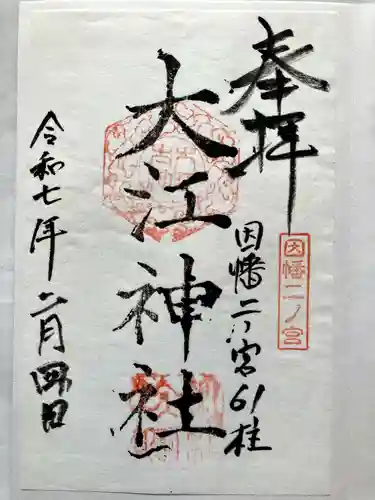 奉拝
因幡二ノ宮
因幡二ノ宮61柱
大江神社
令和七年二月四日